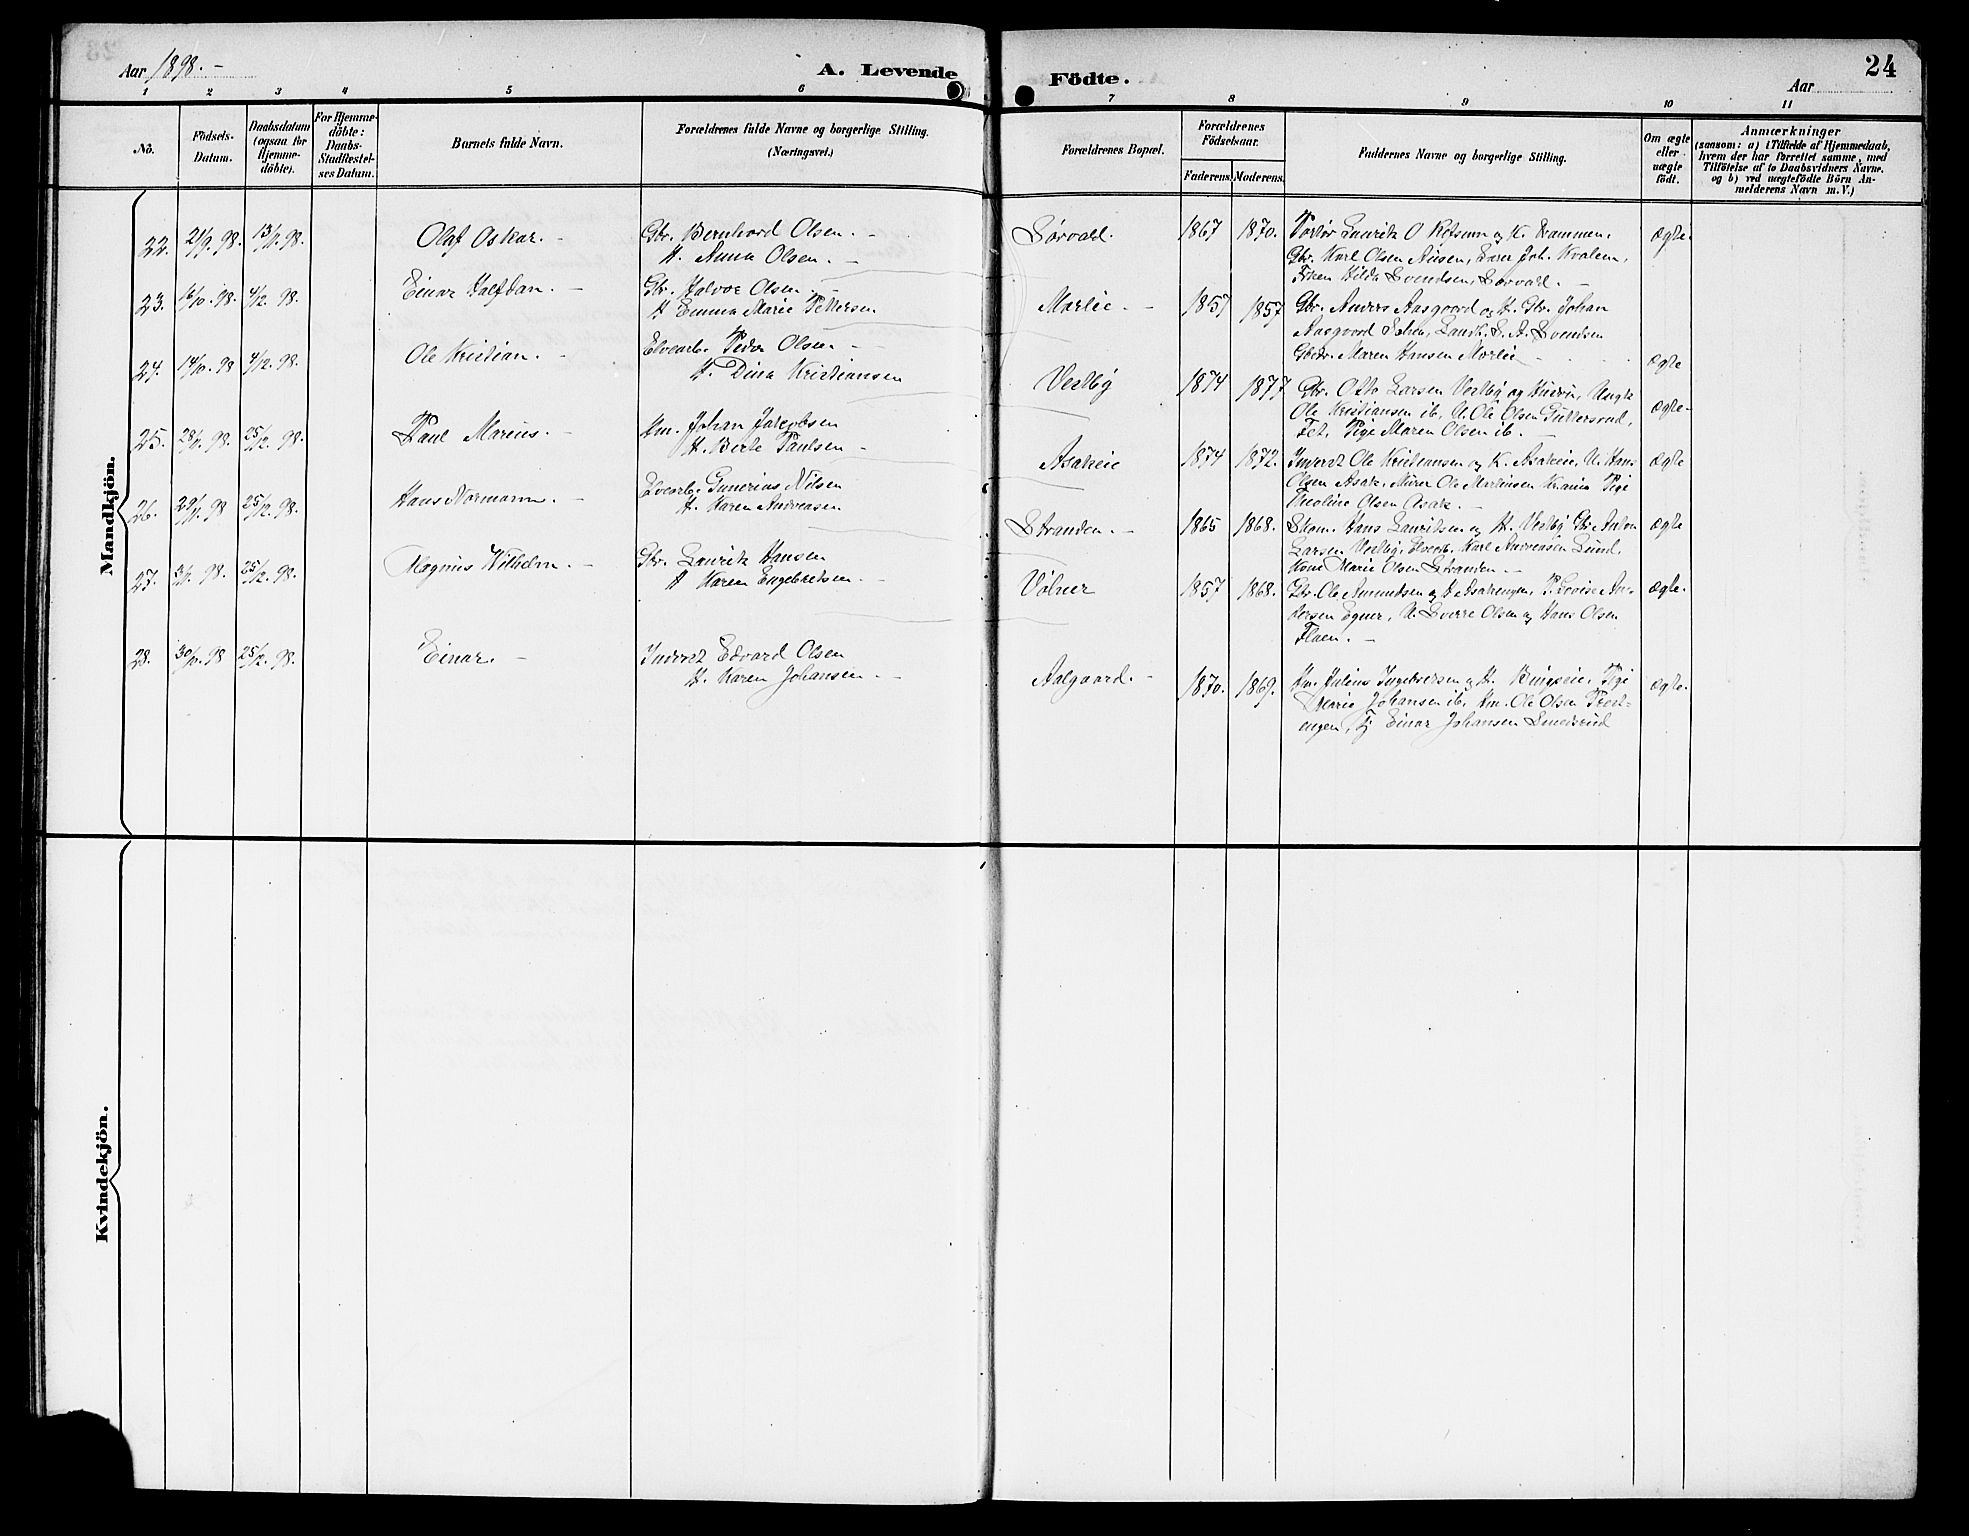 Aar 1898. -
A. Levende
Födte.
24
Aar
1 2 3 4 5 6 7 8 9 10 11
No.
Födsels-
Datum.
Daabsdatum
(ogsaa for
Hjemme-
döbte).
For Hjemme-
döbte:
Daabs-
Stadfæstel-
ses Datum.
Barnets fulde Navn.
Forældrenes fulde Navne og borgerlige Stilling.
(Næringsvei.)
Forældrenes Bopæl.
Forældrenes
Födselsaar.
Faderens. Moderens.
Faddernes Navne og borgerlige Stilling.
Om ægte
eller
uægte
födt.
Anmærkninger
(saasom: a) i Tilfælde af Hjemmedaab,
hvem der har forrettet samme, med
Tilföielse af to Daabsvidners Navne.
og b) ved uægtefödte Börn An-
melderens Navn m. V.)
Mandkjön.
22. 21/9. 98. 13/11. 98. Olaf Oskar. - Gbr. Bernhard Olsen. -
H. Anna Olsen. -
Sørvald. 1867 1870. Lauritz O Refsum og K. Drammen,
Gbr. Karl Olsen Joh. Kvalem,
Hilda Svendsen, Sørvald. -
ægte.
23. 16/10. 98. 4/12. 98. Einar Halfdan. - Gbr. Halvor Olsen. -
H Emma Marie Pettersen
Marlie. - 1857 1857 Gbr. Anders Aasgaard og H. Gbr. Johan
Aasgaard S. A. Svendsen
Maren Hansen Morlie -
ægte
24. 14/10. 98 4/12. 98. Ole Kristian. - Elvearb. Peder Olsen -
H. Dina Kristiansen
Vestby 1874 1877 Gbr. Otto Larsen Vestby og Hustru, Ungk
Ole Kristiansen ib, U. Ole Olsen Guttersrud,
Fet, Pige Maren Olsen ib. -
ægte-
25. 28/11. 98. 25/12. 98. Paul Marius. - Hm. Johan Jakobsen
H. Berte Paulsen -
Asakeie 1874 1872. Inderst Ole Kristiansen og K. Asakeie, U. Hans
Olsen Asak, Murer Ole Martinsen Krania Pige
Theoline Olsen Asak. -
ægte
26. 29/11. 98 25/12. 98. Hans Normann. - Elvearb. Gunerius Nilsen
H. Karen Andreasen
Stranden. - 1865 1868. Skom. Hans Lauritsen og H. Vestby Gbr Anton
Larsen Vestby, Elvearb. Karl Andreasen Lund,
Kone Marie Olsen Stranden -
ægte
27. 98. 25/12. 98. Magnus Wilhelm. - Gbr. Lauritz Hansen
H Karen Engebretsen. -
Vølner 1857 1868. Gbr. Ole Amundsen og H Asakengen, P. Lovise An-
dersen Egner, U. Sverre Olsen og Hans Olsen
Flaen. -
ægte.
28. 30/10. 98 25/12. 98. Einar. - Inderst Edvard Olsen
H. Karen Johansen. -
Aalgaard. - 1870. 1869. Hm. Julius Ingebretsen og H. Bingseie, Pige
Marie Johansen ib, Hm. Ole Olsen Prest-
engen, Tj Einar Johansen Smedsrud
ægte.
Kvindekjön.